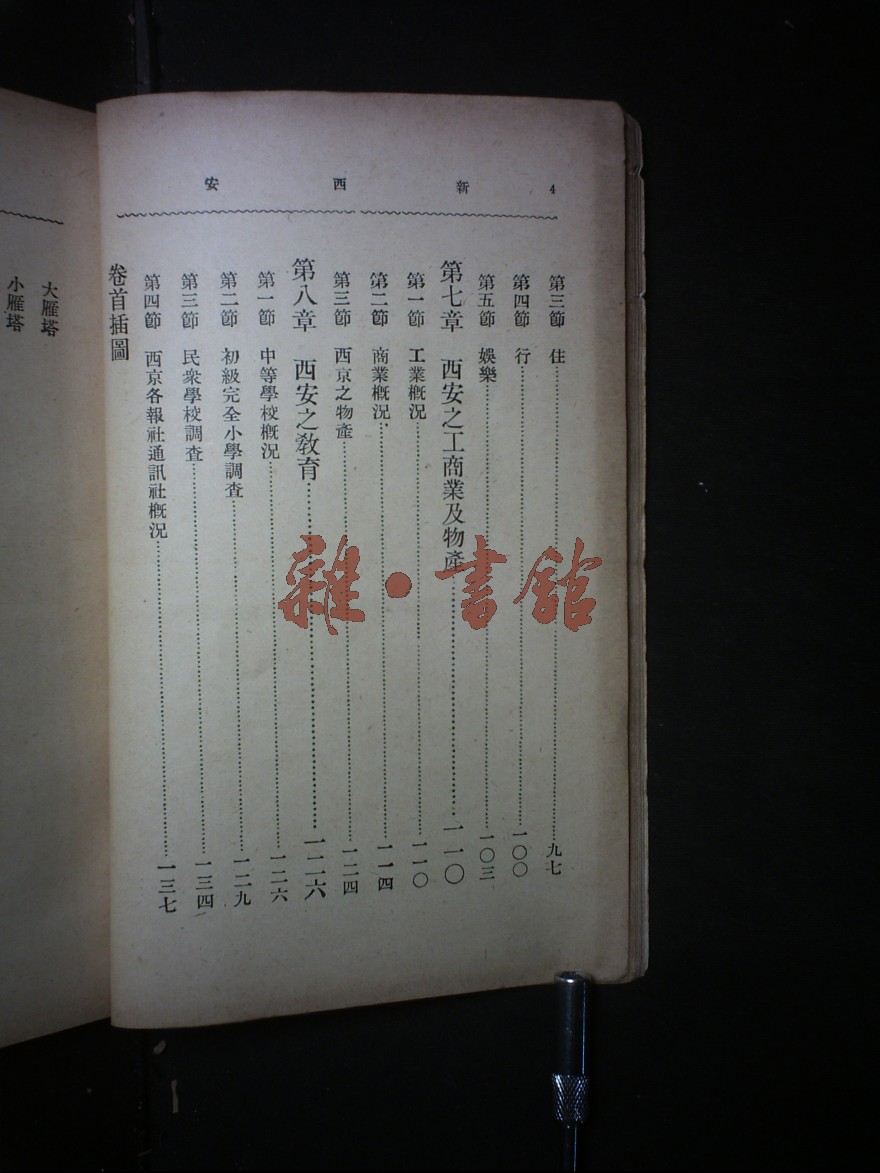 新西安
4
第三節 住……九七
第四節 行……一〇〇
第五節 娛樂……一〇三
第七章 西安之工商業及物產……一一〇
第一節 工業概況……一一〇
第二節 商業概況……一一四
第三節 西京之物產……一二四
第八章 西安之教育……一二六
第一節 中等學校概況……一二六
第二節 初級完全小學調查……一二九
第三節 民衆學校調查……一三四
第四節 西京各報社通訊社概況……一三七
卷首插圖
大雁塔
小雁塔
雜·書館